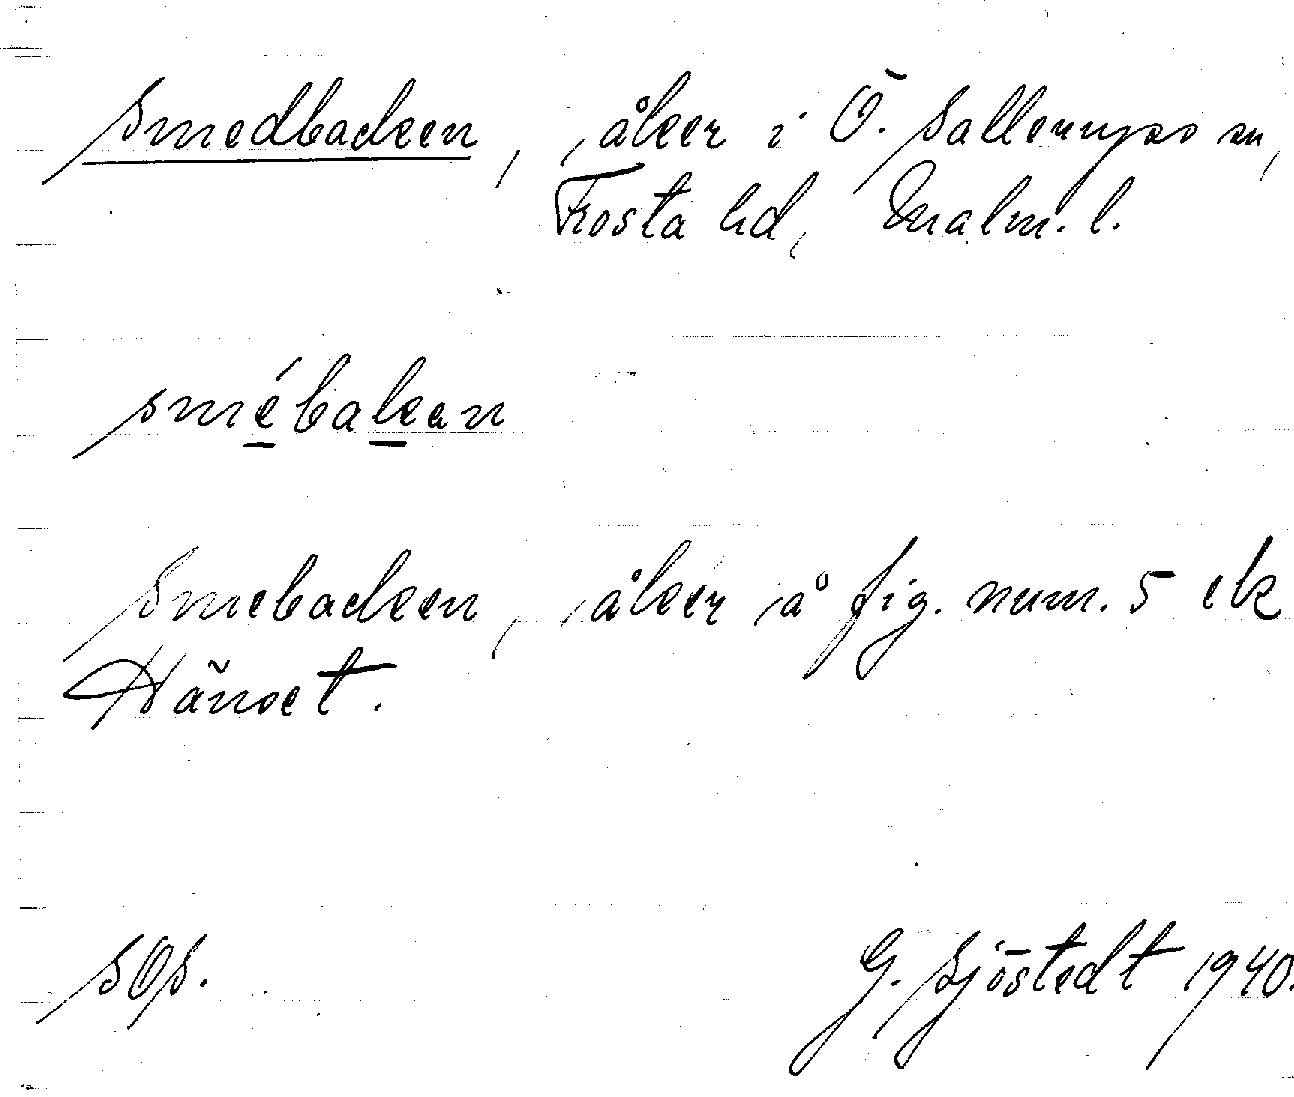 Smedbacken, åker i Ö. Sallerups sn,
Frosta hd, Malm. l.
smébakan
Smebacken, åker å fig. num. 5 ek
Hänset.
SOS.
G. Sjöstedt 1940.